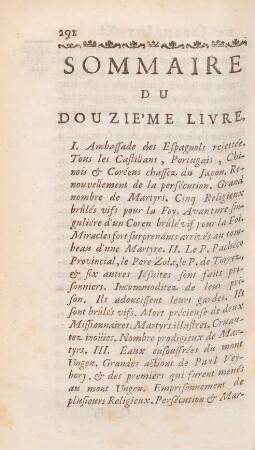 292
SOMMAIRE
DU
DOUZIE'ME LIVRE.
I. Ambassade des Espagnols rejettée.
Tous les Castillans, Portugais, Chi-
nois & Coréens chassez du Japon. Re-
nouvellement de la persécution. Grand
nombre de Martyrs. Cinq Religieux
brûlés vifs pour la Foy. Avanture sin-
guliére d'un Coren brûlé vif pour la Foi.
Miracles fort surprenants arrivés au tom-
beau d'une Martyre. II. Le P. Pacheco
Provincial, le Pere Zola, le P. de Torrez,
& six autres Jésuites sont faits pri-
sonniers. Incommoditez de leur pri-
son. Ils adoucissent leurs gardes. Ils
sont brûlés vifs. Mort précieuse de deux
Missionnaires. Martyrs illustres. Cruau-
tez inoüies. Nombre prodigieux de Mar-
tyrs. III. Eaux ensouffrées du mont
Ungen. Grandes actions de Paul Vey-
bory, & des premiers qui furent menés
au mont Ungen. Emprisonnement de
plusieurs Religieux. Persécution & Mar-